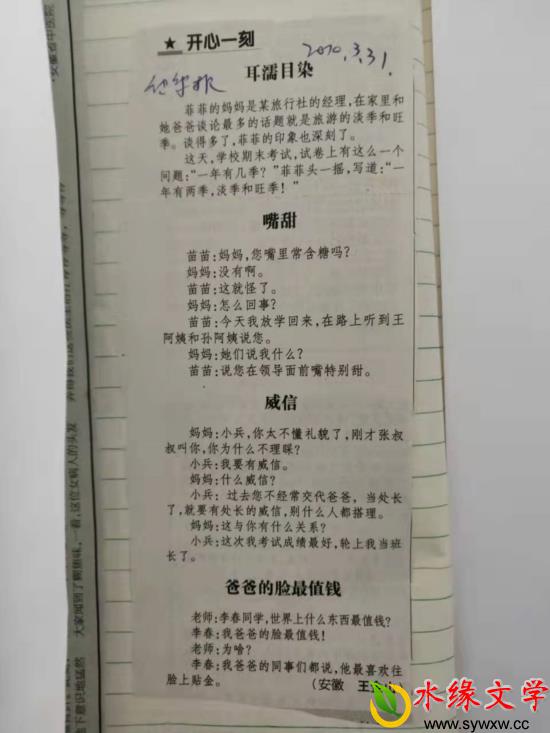 ★ 开心一刻
2010.3.31.
耳濡目染
菲菲的妈妈是某旅行社的经理，在家里和
她爸爸谈论最多的话题就是旅游的淡季和旺
季。谈得多了，菲菲的印象也深刻了。
这天，学校期末考试，试卷上有这么一个
问题：“一年有几季？”菲菲头一摇，写道：“一
年有两季，淡季和旺季！”
嘴甜
苗苗：妈妈，您嘴里常含糖吗？
妈妈：没有啊。
苗苗：这就怪了。
妈妈：怎么回事？
苗苗：今天我放学回来，在路上听到王
阿姨和孙阿姨说您。
妈妈：她们说我什么？
苗苗：说您在领导面前嘴特别甜。
威信
妈妈：小兵，你太不懂礼貌了，刚才张叔
叔叫你，你为什么不理睬？
小兵：我要有威信。
妈妈：什么威信？
小兵：过去您不经常交代爸爸，当处长
了，就要有处长的威信，别什么人都搭理。
妈妈：这与你有什么关系？
小兵：这次我考试成绩最好，轮上我当班
长了。
爸爸的脸最值钱
老师：李春同学，世界上什么东西最值钱？
李春：我爸爸的脸最值钱！
老师：为啥？
李春：我爸爸的同事们都说，他最喜欢往
脸上贴金。
（安徽 王
安徽省中医院
大家闻到了糊焦味，一看，这位女病人的头发
下意识地猛然
水缘文学
www.sywxw.cc